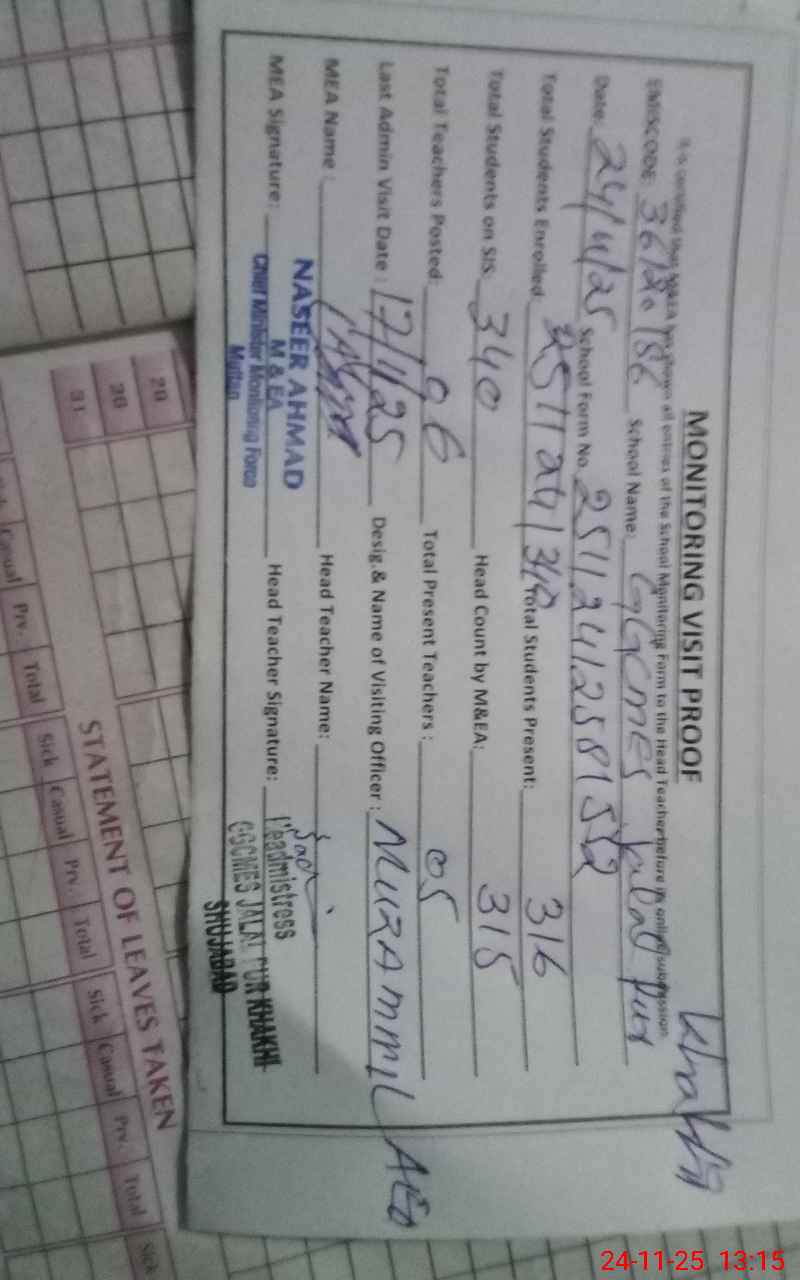 MONITORING VISIT PROOF
Khakhi
It is certified that M&EA has shown all entries of the School Monitoring Form to the Head Teacher before its online submission.
EMISCODE: 36120186 School Name: GGCMES Jalal Pur
Date: 24/11/25 School Form No. 25112412581552
Total Students Enrolled: 319 Total Students Present: 316
Total Students on SIS: 340 Head Count by M&EA: 315
Total Teachers Posted: 06 Total Present Teachers: 05
Last Admin Visit Date: 17/11/25 Desig.& Name of Visiting Officer: MUZAMMIL AEO
MEA Name: Head Teacher Name:
MEA Signature: Head Teacher Signature:
NASEER AHMAD
M & EA
Chief Minister Monitoring Force
Multan
Headmistress
GGCMES JALAL PUR KHAKHI
SHUJABAD
29
30
31
STATEMENT OF LEAVES TAKEN
Casual Prv. Total Sick Casual Prv. Total Sick Casual Prv. Total Sick
24-11-25 13:15